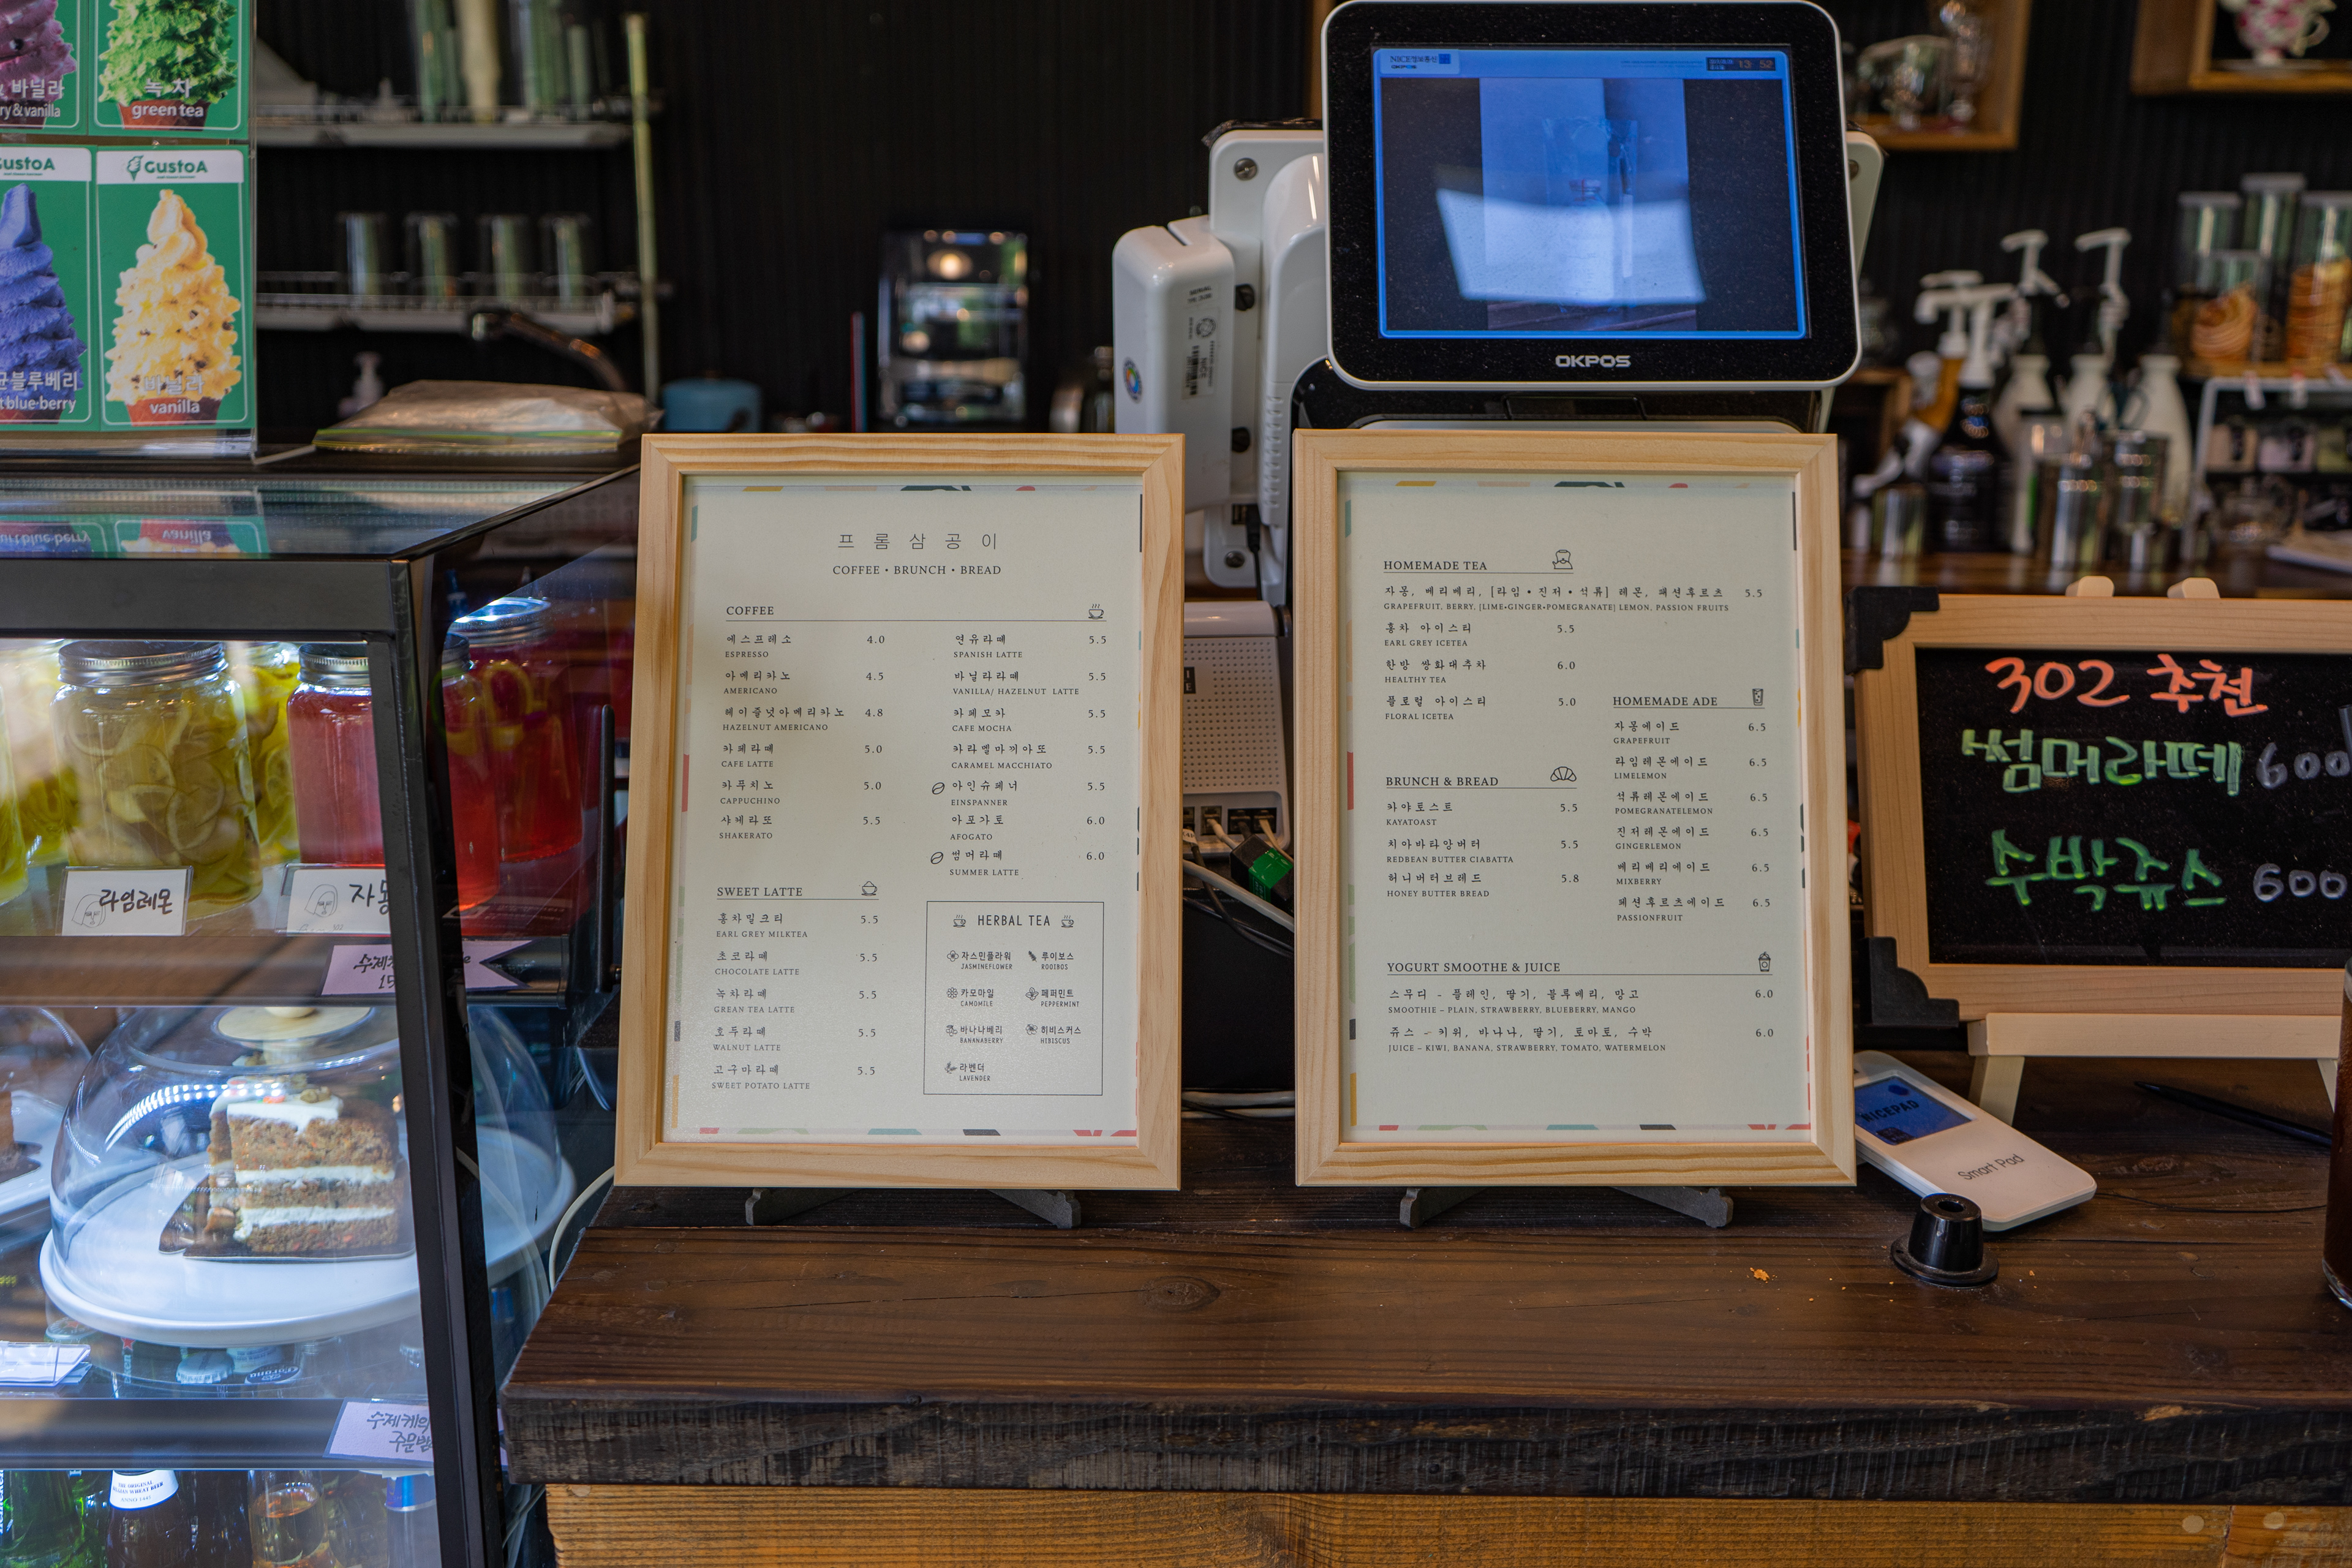 바닐라
ry & vanilla
녹차
green tea
GustoA
GustoA
블루베리
t blue berry
바닐라
vanilla
라임레몬
자몽
수제
NICE정보통신
OKPOS
13 52
OKPOS
프롬삼공이
COFFEE • BRUNCH • BREAD
COFFEE
에스프레소 4.0
ESPRESSO
아메리카노 4.5
AMERICANO
헤이즐넛아메리카노 4.8
HAZELNUT AMERICANO
카페라떼 5.0
CAFE LATTE
카푸치노 5.0
CAPPUCHINO
샤케라또 5.5
SHAKERATO
연유라떼 5.5
SPANISH LATTE
바닐라라떼 5.5
VANILLA/ HAZELNUT LATTE
카페모카 5.5
CAFE MOCHA
카라멜마끼아또 5.5
CARAMEL MACCHIATO
아인슈페너 5.5
EINSPANNER
아포가토 6.0
AFOGATO
썸머라떼 6.0
SUMMER LATTE
SWEET LATTE
홍차밀크티 5.5
EARL GREY MILKTEA
초코라떼 5.5
CHOCOLATE LATTE
녹차라떼 5.5
GREAN TEA LATTE
호두라떼 5.5
WALNUT LATTE
고구마라떼 5.5
SWEET POTATO LATTE
HERBAL TEA
자스민플라워 루이보스
JASMINEFLOWER ROOIBOS
카모마일 페퍼민트
CAMOMILE PEPPERMINT
바나나베리 히비스커스
BANANABERRY HIBISCUS
라벤더
LAVENDER
HOMEMADE TEA
자몽, 베리베리, [라임•진저•석류] 레몬, 패션후르츠 5.5
GRAPEFRUIT, BERRY, [LIME•GINGER•POMEGRANATE] LEMON, PASSION FRUITS
홍차 아이스티 5.5
EARL GREY ICETEA
한방 쌍화대추차 6.0
HEALTHY TEA
플로럴 아이스티 5.0
FLORAL ICETEA
HOMEMADE ADE
자몽에이드 6.5
GRAPEFRUIT
라임레몬에이드 6.5
LIMELEMON
석류레몬에이드 6.5
POMEGRANATELEMON
진저레몬에이드 6.5
GINGERLEMON
베리베리에이드 6.5
MIXBERRY
패션후르츠에이드 6.5
PASSIONFRUIT
BRUNCH & BREAD
카야토스트 5.5
KAYATOAST
치아바타앙버터 5.5
REDBEAN BUTTER CIABATTA
허니버터브레드 5.8
HONEY BUTTER BREAD
YOGURT SMOOTHE & JUICE
스무디 - 플레인, 딸기, 블루베리, 망고 6.0
SMOOTHIE – PLAIN, STRAWBERRY, BLUEBERRY, MANGO
쥬스 – 키위, 바나나, 딸기, 토마토, 수박 6.0
JUICE – KIWI, BANANA, STRAWBERRY, TOMATO, WATERMELON
302 추천
썸머라떼 600
수박쥬스 600
NICEPAD
Smart Pad
수제케익
주문